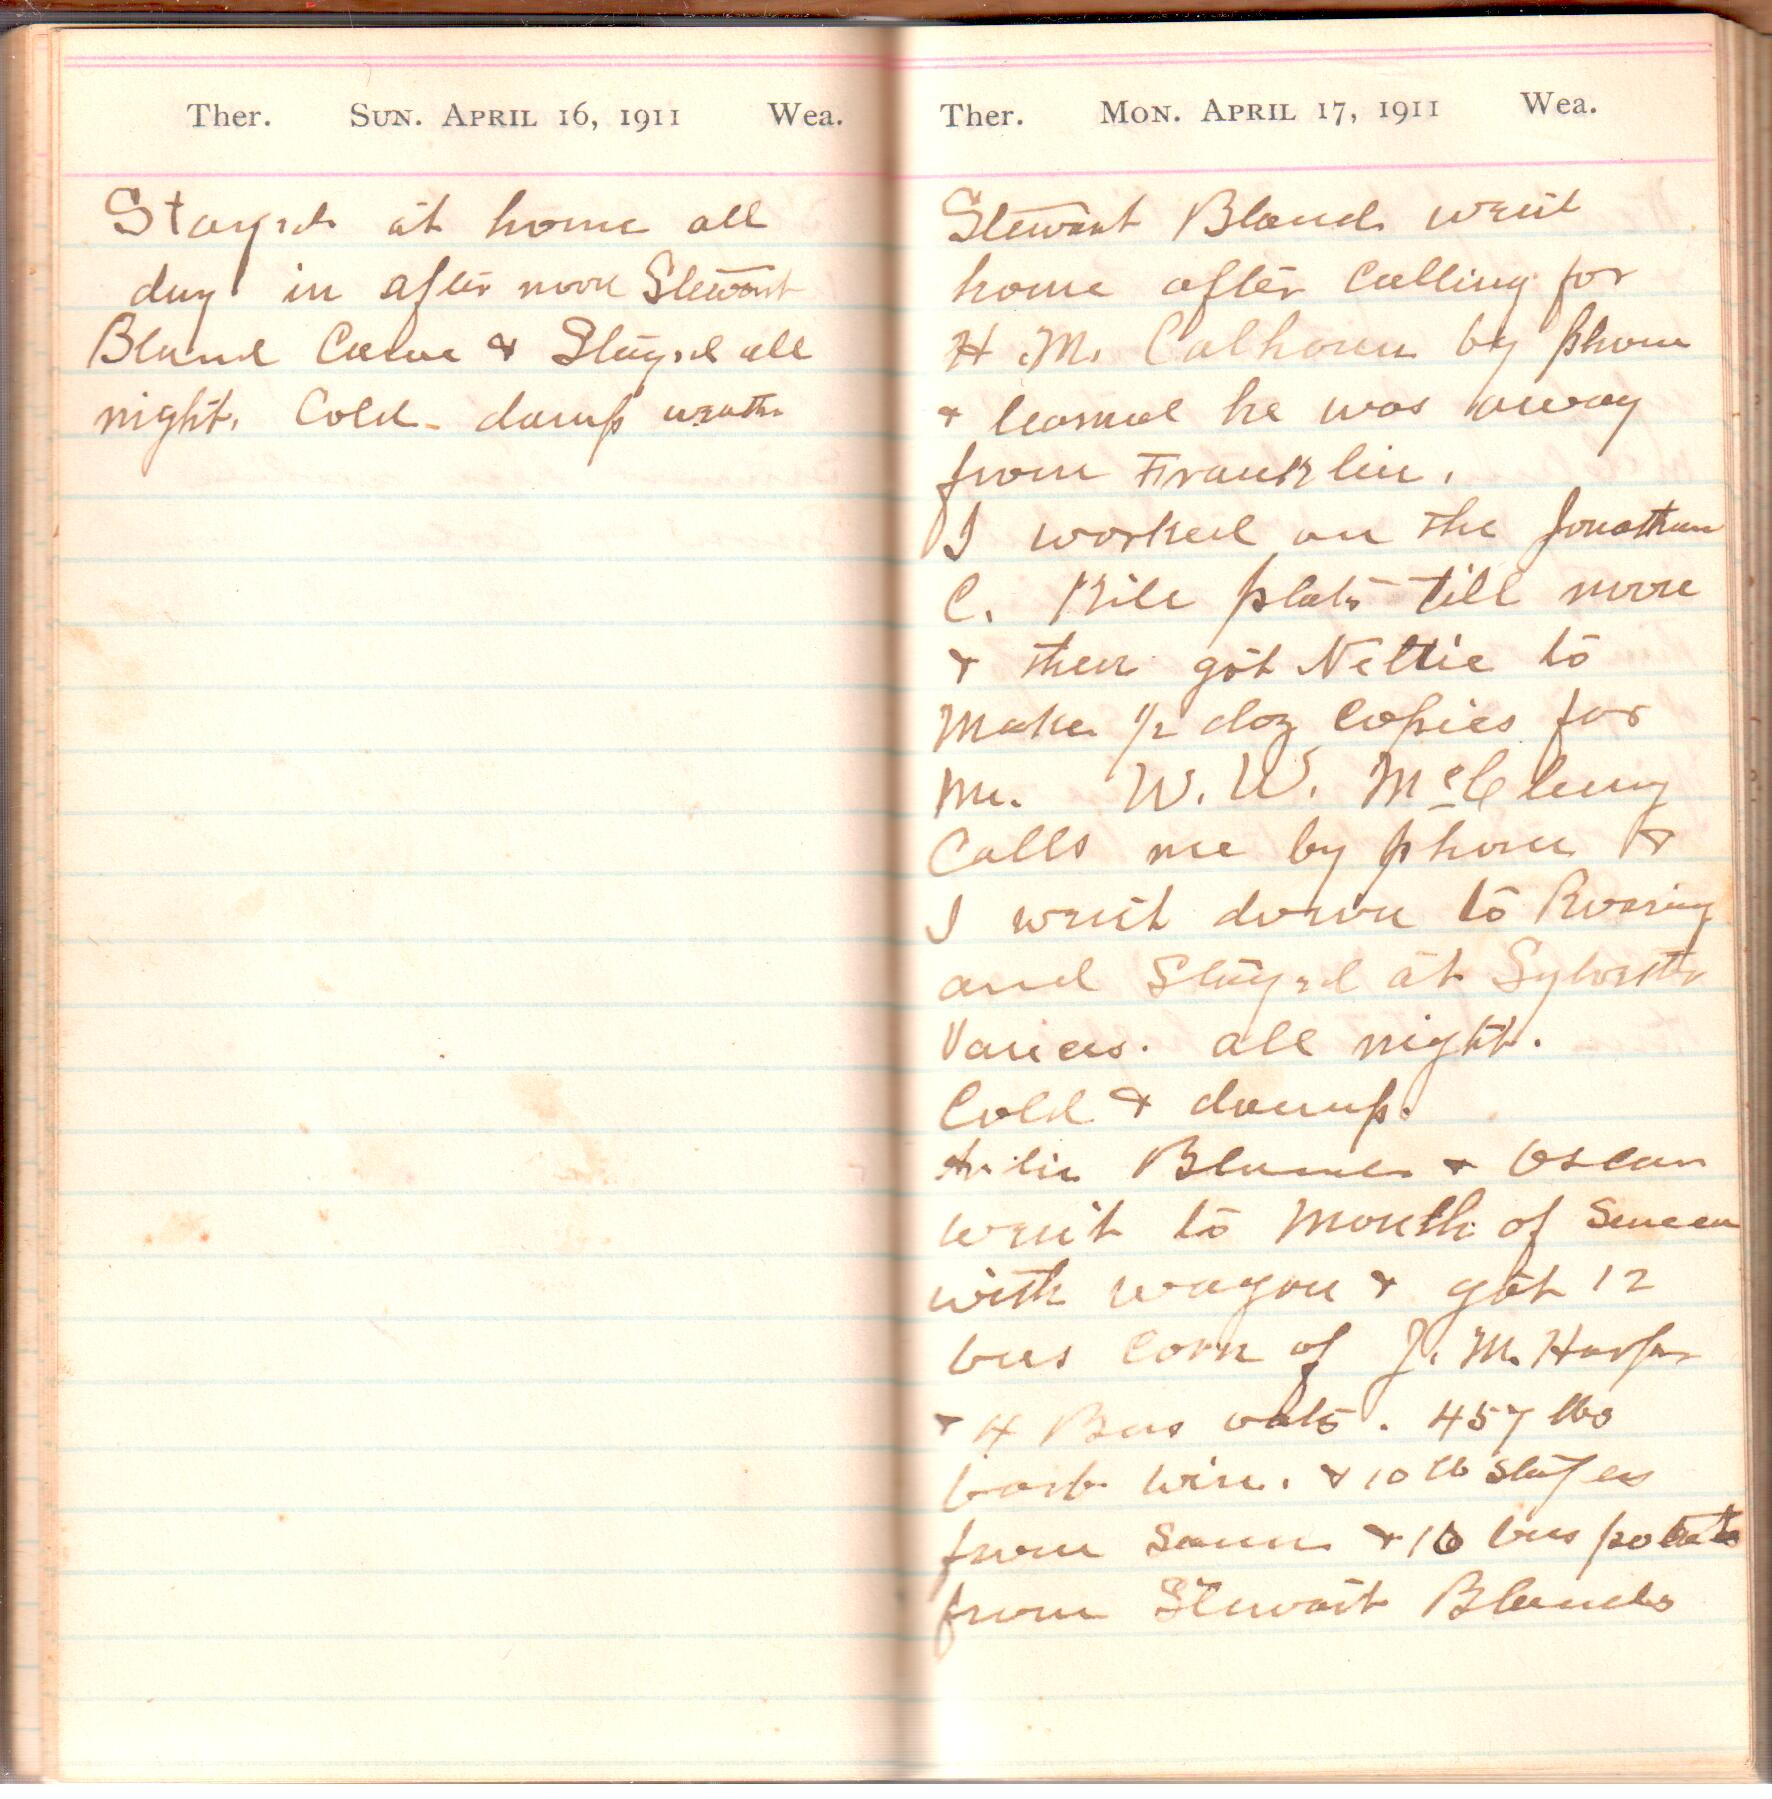 Ther. Sun. April 16, 1911 Wea.
Stayed at home all
day in after noon Stewart
Bland Came & Stayed all
night. Cold damp weather
Ther. Mon. April 17, 1911 Wea.
Stewart Bland went
home after Calling for
H. M. Calhoun by phone
& learned he was away
from Franklin.
I worked on the Jonathan
C. Kile plats till noon
& then got Nettie to
Make 1/2 doz Copies for
me. W. W. McClung
Calls me by phone &
I went down to Roaring
and Stayed at Sylvester
Vances. all night.
Cold & damp.
Arlie Bland & Oscar
went to Mouth of Seneca
with wagon & got 12
bus Corn of J. M. Harper
& 4 Bus oats. 457 lbs
barb wire. & 10 lb staples
from Same & 10 bus potato
from Stewart Blands